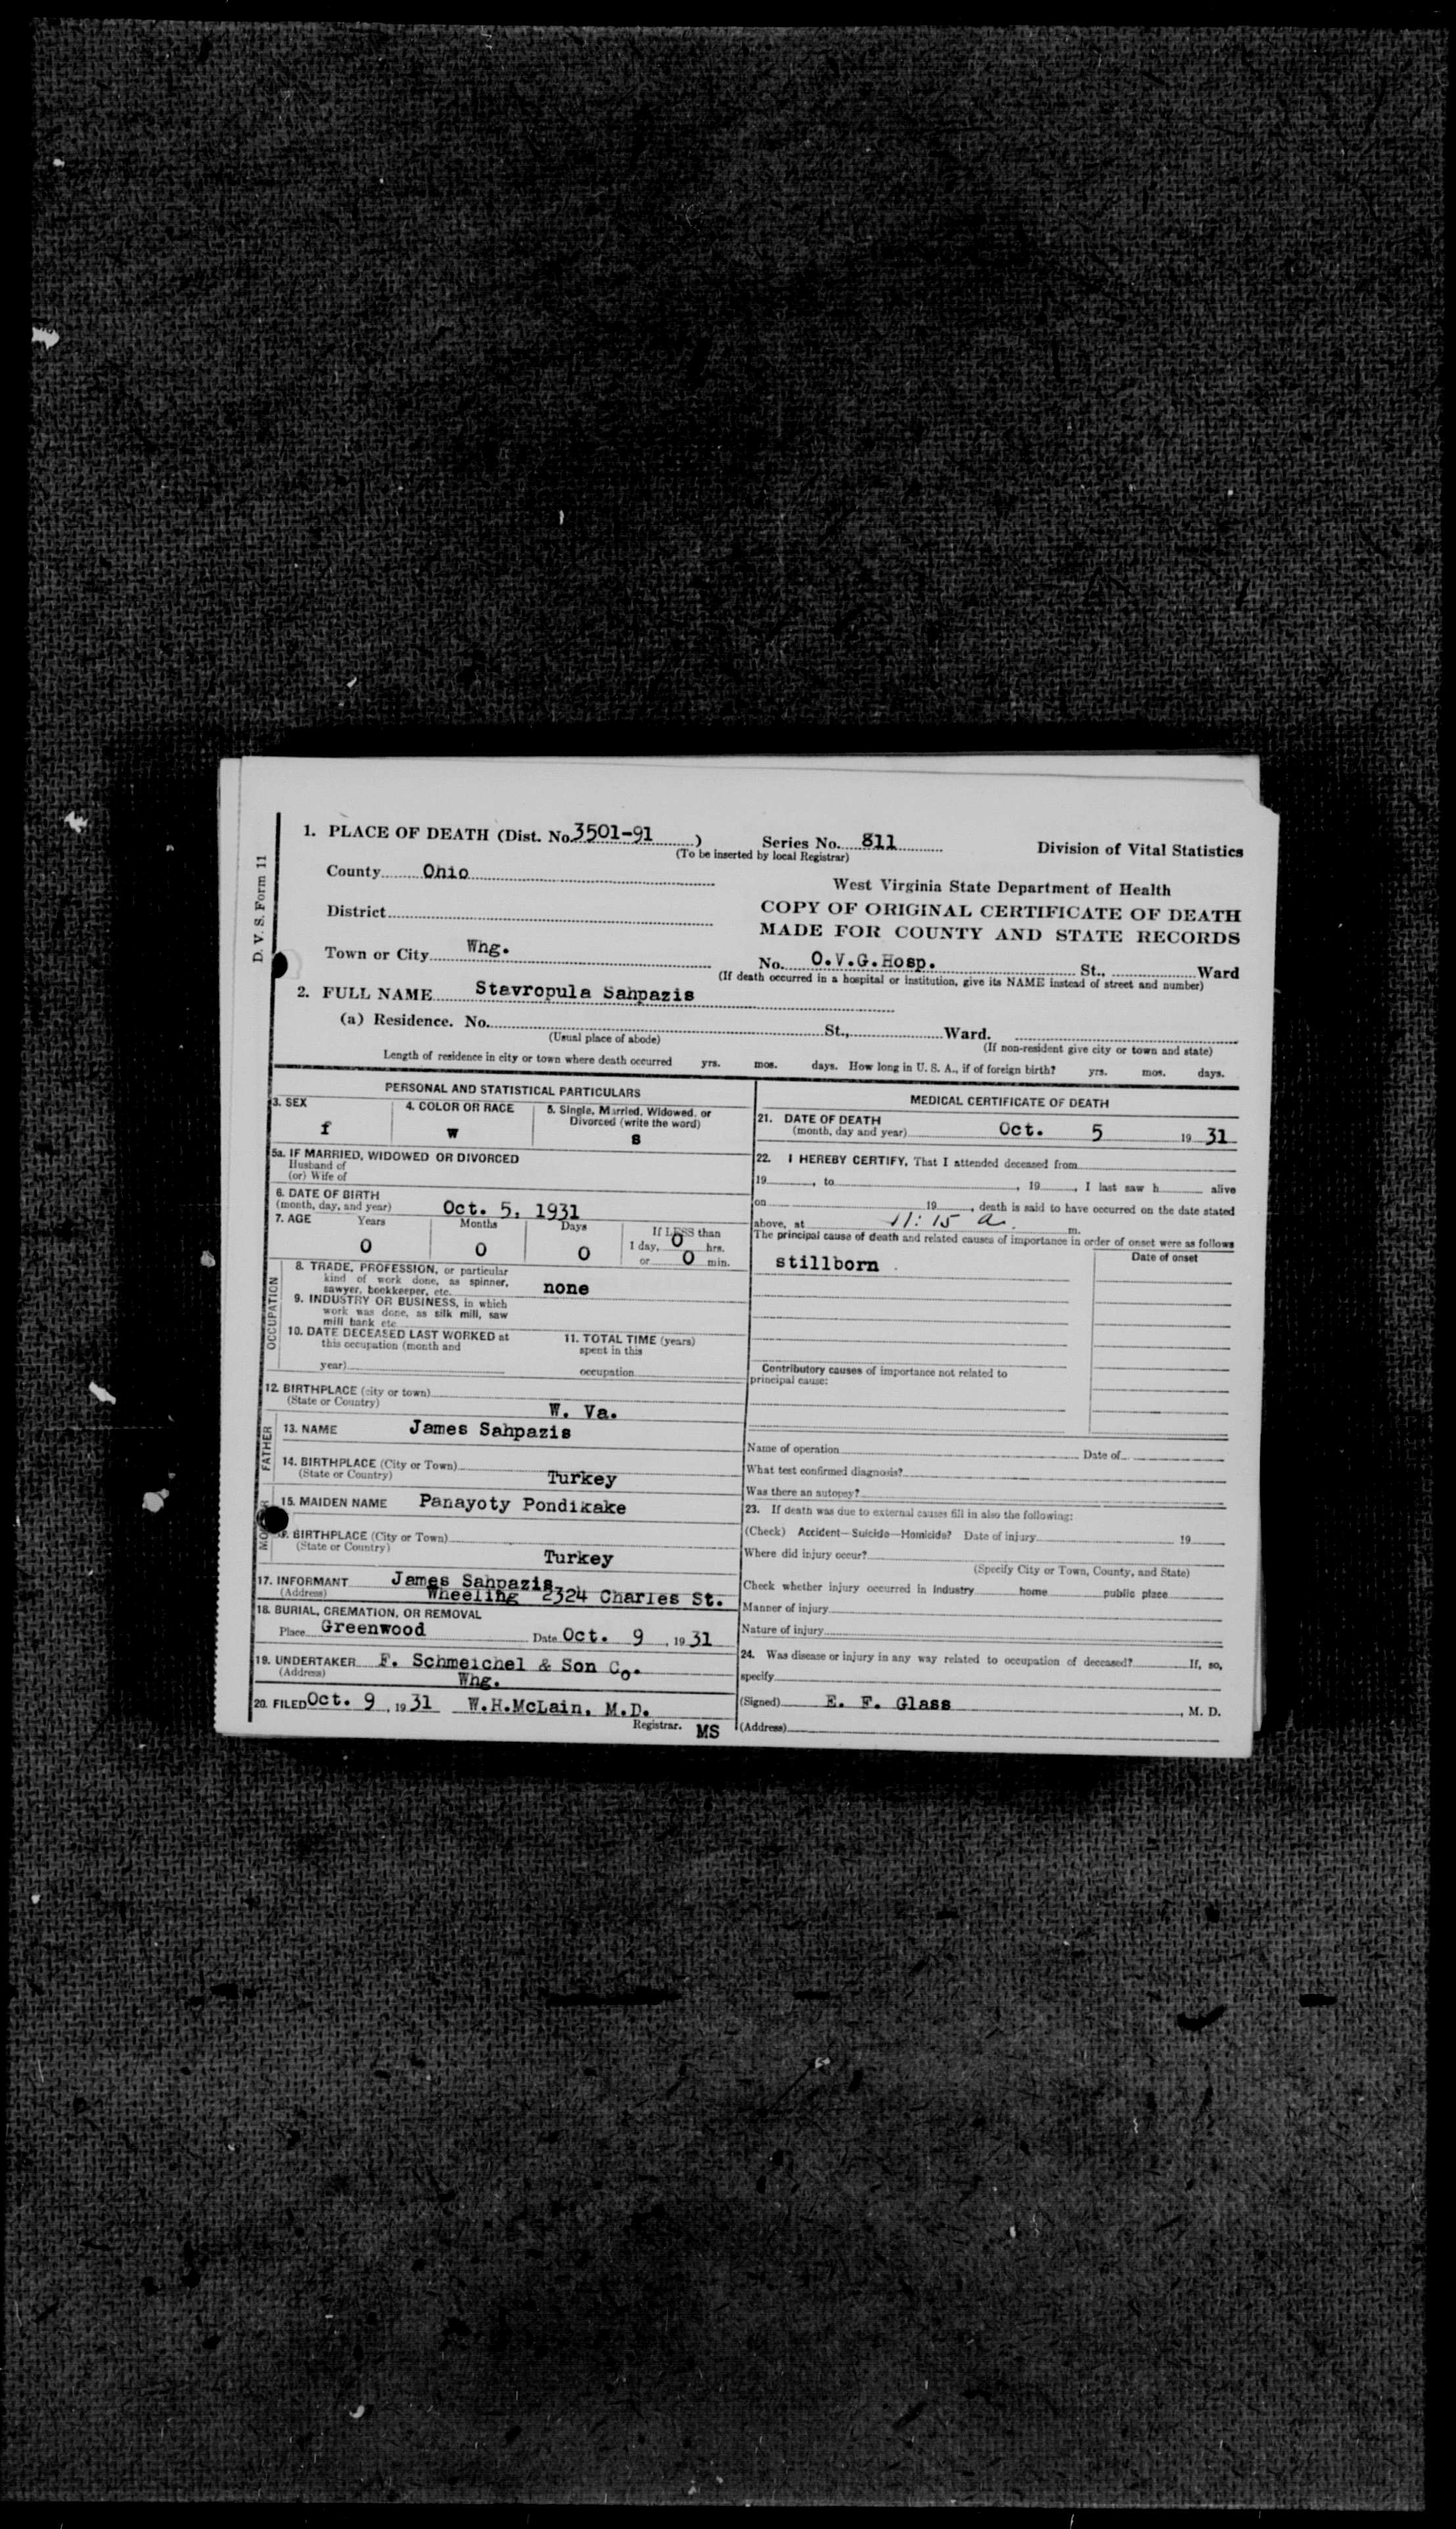 D. V. S. Form 11
1. PLACE OF DEATH (Dist. No. 3501-91 )
Series No. 811
(To be inserted by local Registrar)
Division of Vital Statistics
County Ohio
West Virginia State Department of Health
COPY OF ORIGINAL CERTIFICATE OF DEATH
MADE FOR COUNTY AND STATE RECORDS
District
Town or City Whg.
No. O.V.G.Hosp. St., Ward
(If death occurred in a hospital or institution, give its NAME instead of street and number)
2. FULL NAME Stavropula Sahpazis
(a) Residence. No. St., Ward.
(Usual place of abode)
(If non-resident give city or town and state)
Length of residence in city or town where death occurred yrs. mos. days. How long in U. S. A., if of foreign birth? yrs. mos. days.
PERSONAL AND STATISTICAL PARTICULARS
3. SEX
f
4. COLOR OR RACE
W
5. Single, Married, Widowed, or
Divorced (write the word)
S
5a. IF MARRIED, WIDOWED OR DIVORCED
Husband of
(or) Wife of
6. DATE OF BIRTH
(month, day, and year) Oct. 5, 1931
7. AGE Years Months Days If LESS than
0 0 0 1 day, 0 hrs.
or 0 min.
OCCUPATION
8. TRADE, PROFESSION, or particular
kind of work done, as spinner,
sawyer, bookkeeper, etc. none
9. INDUSTRY OR BUSINESS, in which
work was done, as silk mill, saw
mill bank etc
10. DATE DECEASED LAST WORKED at
this occupation (month and
year)
11. TOTAL TIME (years)
spent in this
occupation
12. BIRTHPLACE (city or town)
(State or Country) W. Va.
FATHER
13. NAME James Sahpazis
14. BIRTHPLACE (City or Town)
(State or Country) Turkey
15. MAIDEN NAME Panayoty Pondikake
BIRTHPLACE (City or Town)
(State or Country) Turkey
17. INFORMANT James Sahpazis
(Address) Wheeling 2324 Charles St.
18. BURIAL, CREMATION, OR REMOVAL
Place Greenwood Date Oct. 9, 19 31
19. UNDERTAKER F. Schmeichel & Son Co.
(Address) Whg.
20. FILED Oct. 9, 19 31 W.H.McLain, M.D.
Registrar. MS
MEDICAL CERTIFICATE OF DEATH
21. DATE OF DEATH
(month, day and year) Oct. 5 19 31
22. I HEREBY CERTIFY, That I attended deceased from
19 , to , 19 , I last saw h alive
on 19 , death is said to have occurred on the date stated
above, at 11:15 a. m.
The principal cause of death and related causes of importance in order of onset were as follows
Date of onset
stillborn
Contributory causes of importance not related to
principal cause:
Name of operation Date of
What test confirmed diagnosis?
Was there an autopsy?
23. If death was due to external causes fill in also the following:
(Check) Accident—Suicide—Homicide? Date of injury 19
Where did injury occur?
(Specify City or Town, County, and State)
Check whether injury occurred in industry home public place
Manner of injury
Nature of injury
24. Was disease or injury in any way related to occupation of deceased? If, so,
specify
(Signed) E. F. Glass , M. D.
(Address)